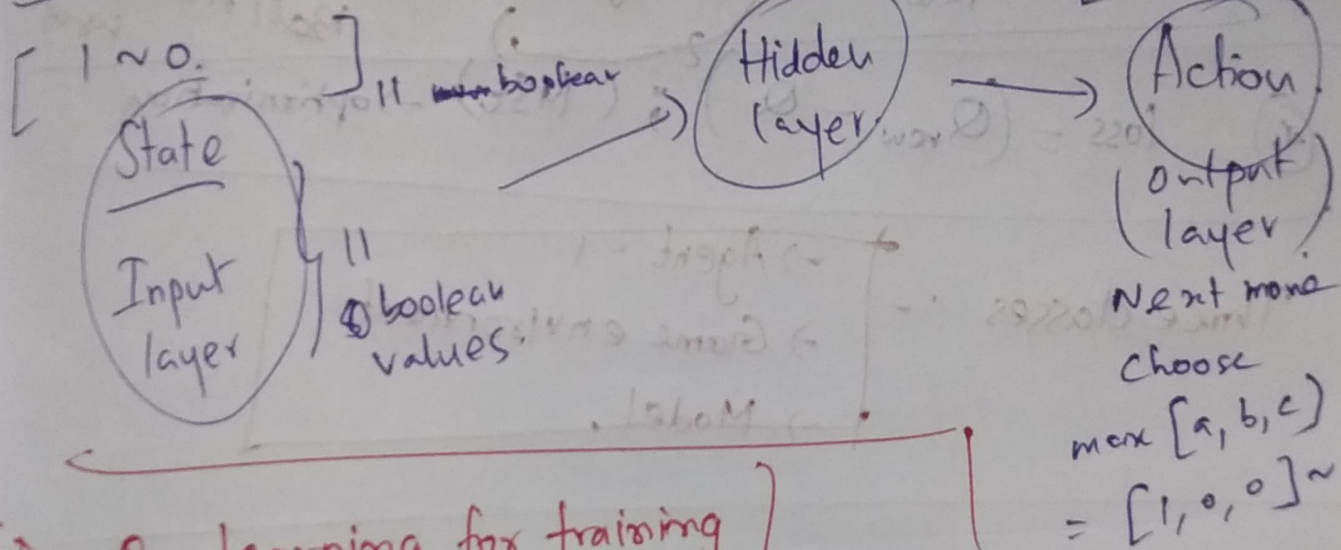 [ 1 ~ 0. ] 11 boolean
State
Input
layer
11
boolean
values.
Hidden
layer
Action
(output
layer)
Next move
choose
max [a, b, c]
= [1, 0, 0] ~
learning for training ]